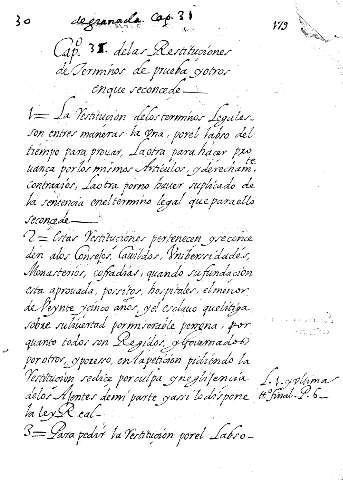 30 de granada Cap. 31 179
Capº. 31 de las Restituciones
de Terminos de prueba y otros
en que se concede
1= La restitucion de los terminos Legales
son en tres maneras la Una, por el labso del
tiempo para provar, La otra para hacer pro
vança por los mismos Articulos, y derecham.te
contrarios, La otra por no haver suplicado de
la sentencia en el termino legal que para ello
se concede
2= Estas restituciones pertenecen y se conce
den a los Consejos, Cavildos, Vniversidades,
Monasterios, cofradias, quando su fundacion
esta aprovada, positos, hospitales, el menor
de Veynte y cinco años, y el esclavo que litiga
sobre su livertad por miserable persona, por
quanto todos son Regidos, y Governados
por otros, y por eso, en la peticion pidiendo la
restitucion se dice por culpa, y negligencia
de los Agentes de mi parte y assi lo dispone
la ley Real
L. 1. y ultima
tt.º final. P. 6
3= Para pedir la restitucion por el Labso